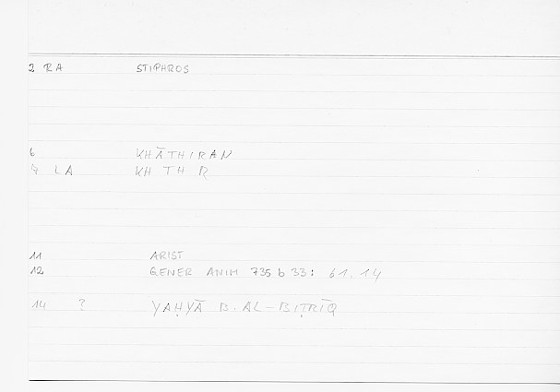 2 RA STIPHROS
6 KHĀTHIRAN
9 LA KH TH R
11 ARIST
12 GENER ANIM 735 b 33: 61.14
14 ? YAḤYĀ B. AL-BIṬRĪQ